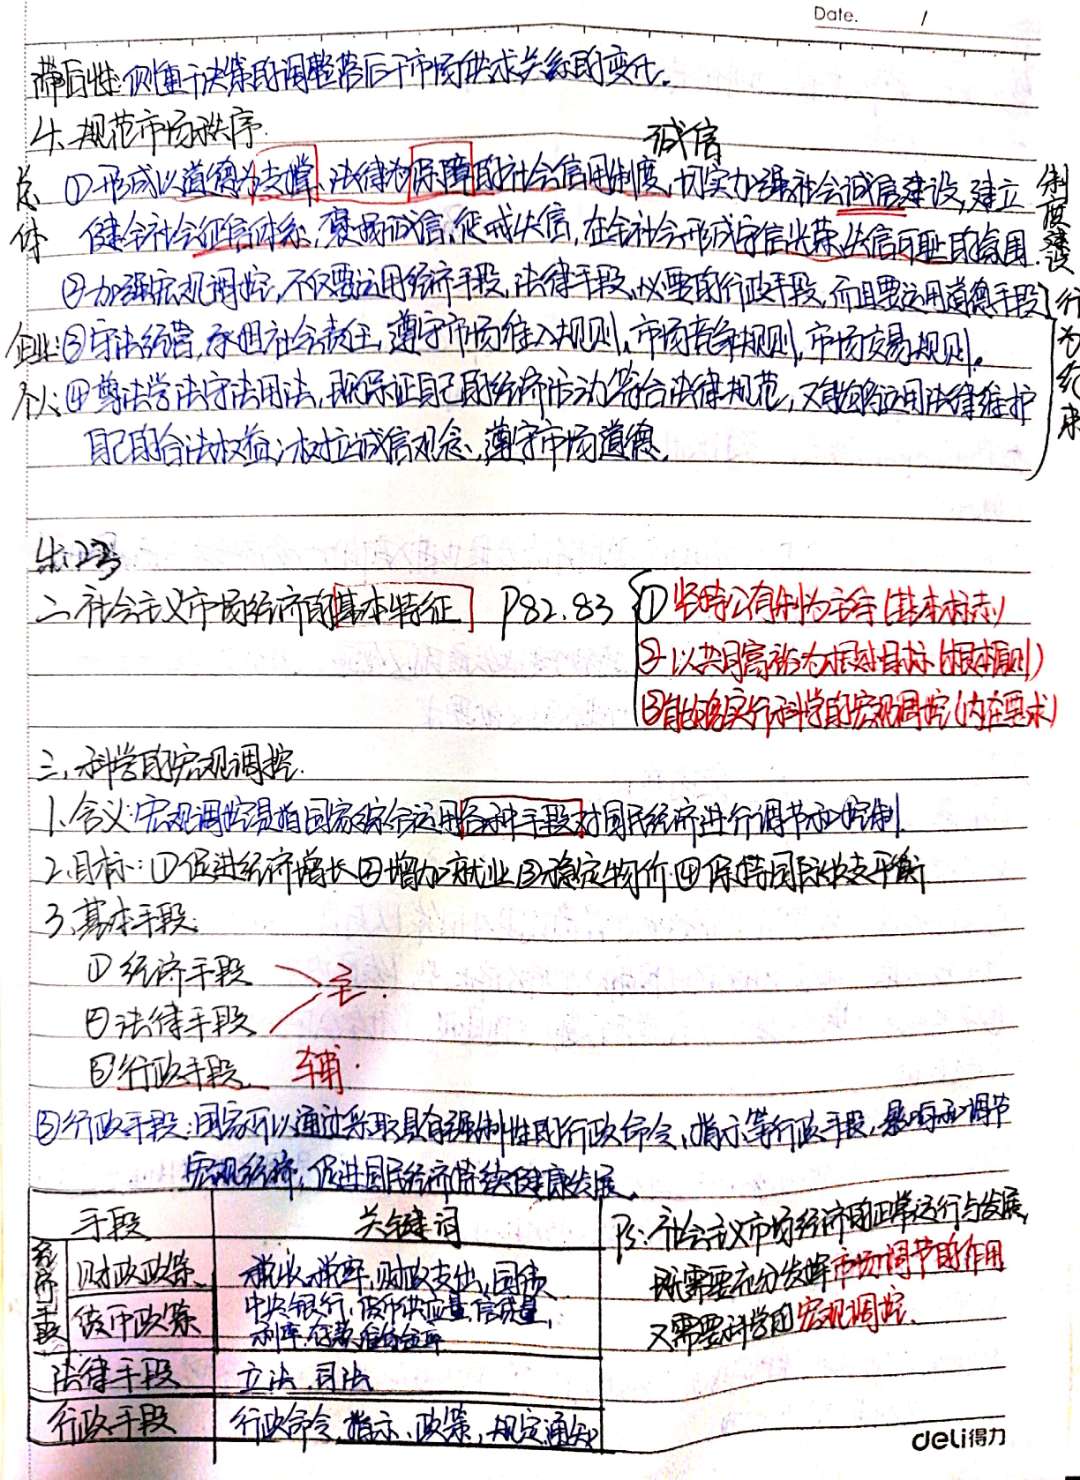 Date. /
滞后性:侧重于决策的调整落后于市场供求关系的变化。
4. 规范市场秩序
诚信
总体 ①形成以道德为支撑、法律为保障的社会信用制度,切实加强社会诚信建设,建立
健全社会征信体系,褒扬诚信,惩戒失信,在全社会形成守信光荣、失信可耻的氛围
制度建设
②加强宏观调控,不仅要运用经济手段,法律手段,必要的行政手段,而且要运用道德手段
企业:③守法经营,承担社会责任,遵守市场准入规则,市场竞争规则,市场交易规则。
个人:④尊法学法守法用法,既保证自己的经济活动符合法律规范,又能够运用法律维护
自己的合法权益;树立诚信观念、遵守市场道德。
行为约束
二.社会主义市场经济的基本特征 P82.83
①坚持公有制为主体(基本标志)
②以共同富裕为根本目标(根本原则)
③能够实行科学的宏观调控(内在要求)
三.科学的宏观调控.
1.含义:宏观调控是指国家综合运用各种手段对国民经济进行调节和控制
2.目标:①促进经济增长②增加就业③稳定物价④保持国际收支平衡
3.基本手段:
①经济手段
主.
②法律手段
③行政手段 辅.
③行政手段:国家可以通过采取具有强制性的行政命令、指示等行政手段,影响和调节
宏观经济,促进国民经济持续健康发展。
手段 关键词
经济手段 财政政策 税收、税率,财政支出、国债
货币政策 中央银行,货币供应量,信贷量,
利率,存款准备金率
法律手段 立法、司法
行政手段 行政命令、指示、政策、规定通知
Ps:社会主义市场经济的正常运行与发展,
既需要充分发挥市场调节的作用
又需要科学的宏观调控.
deli得力